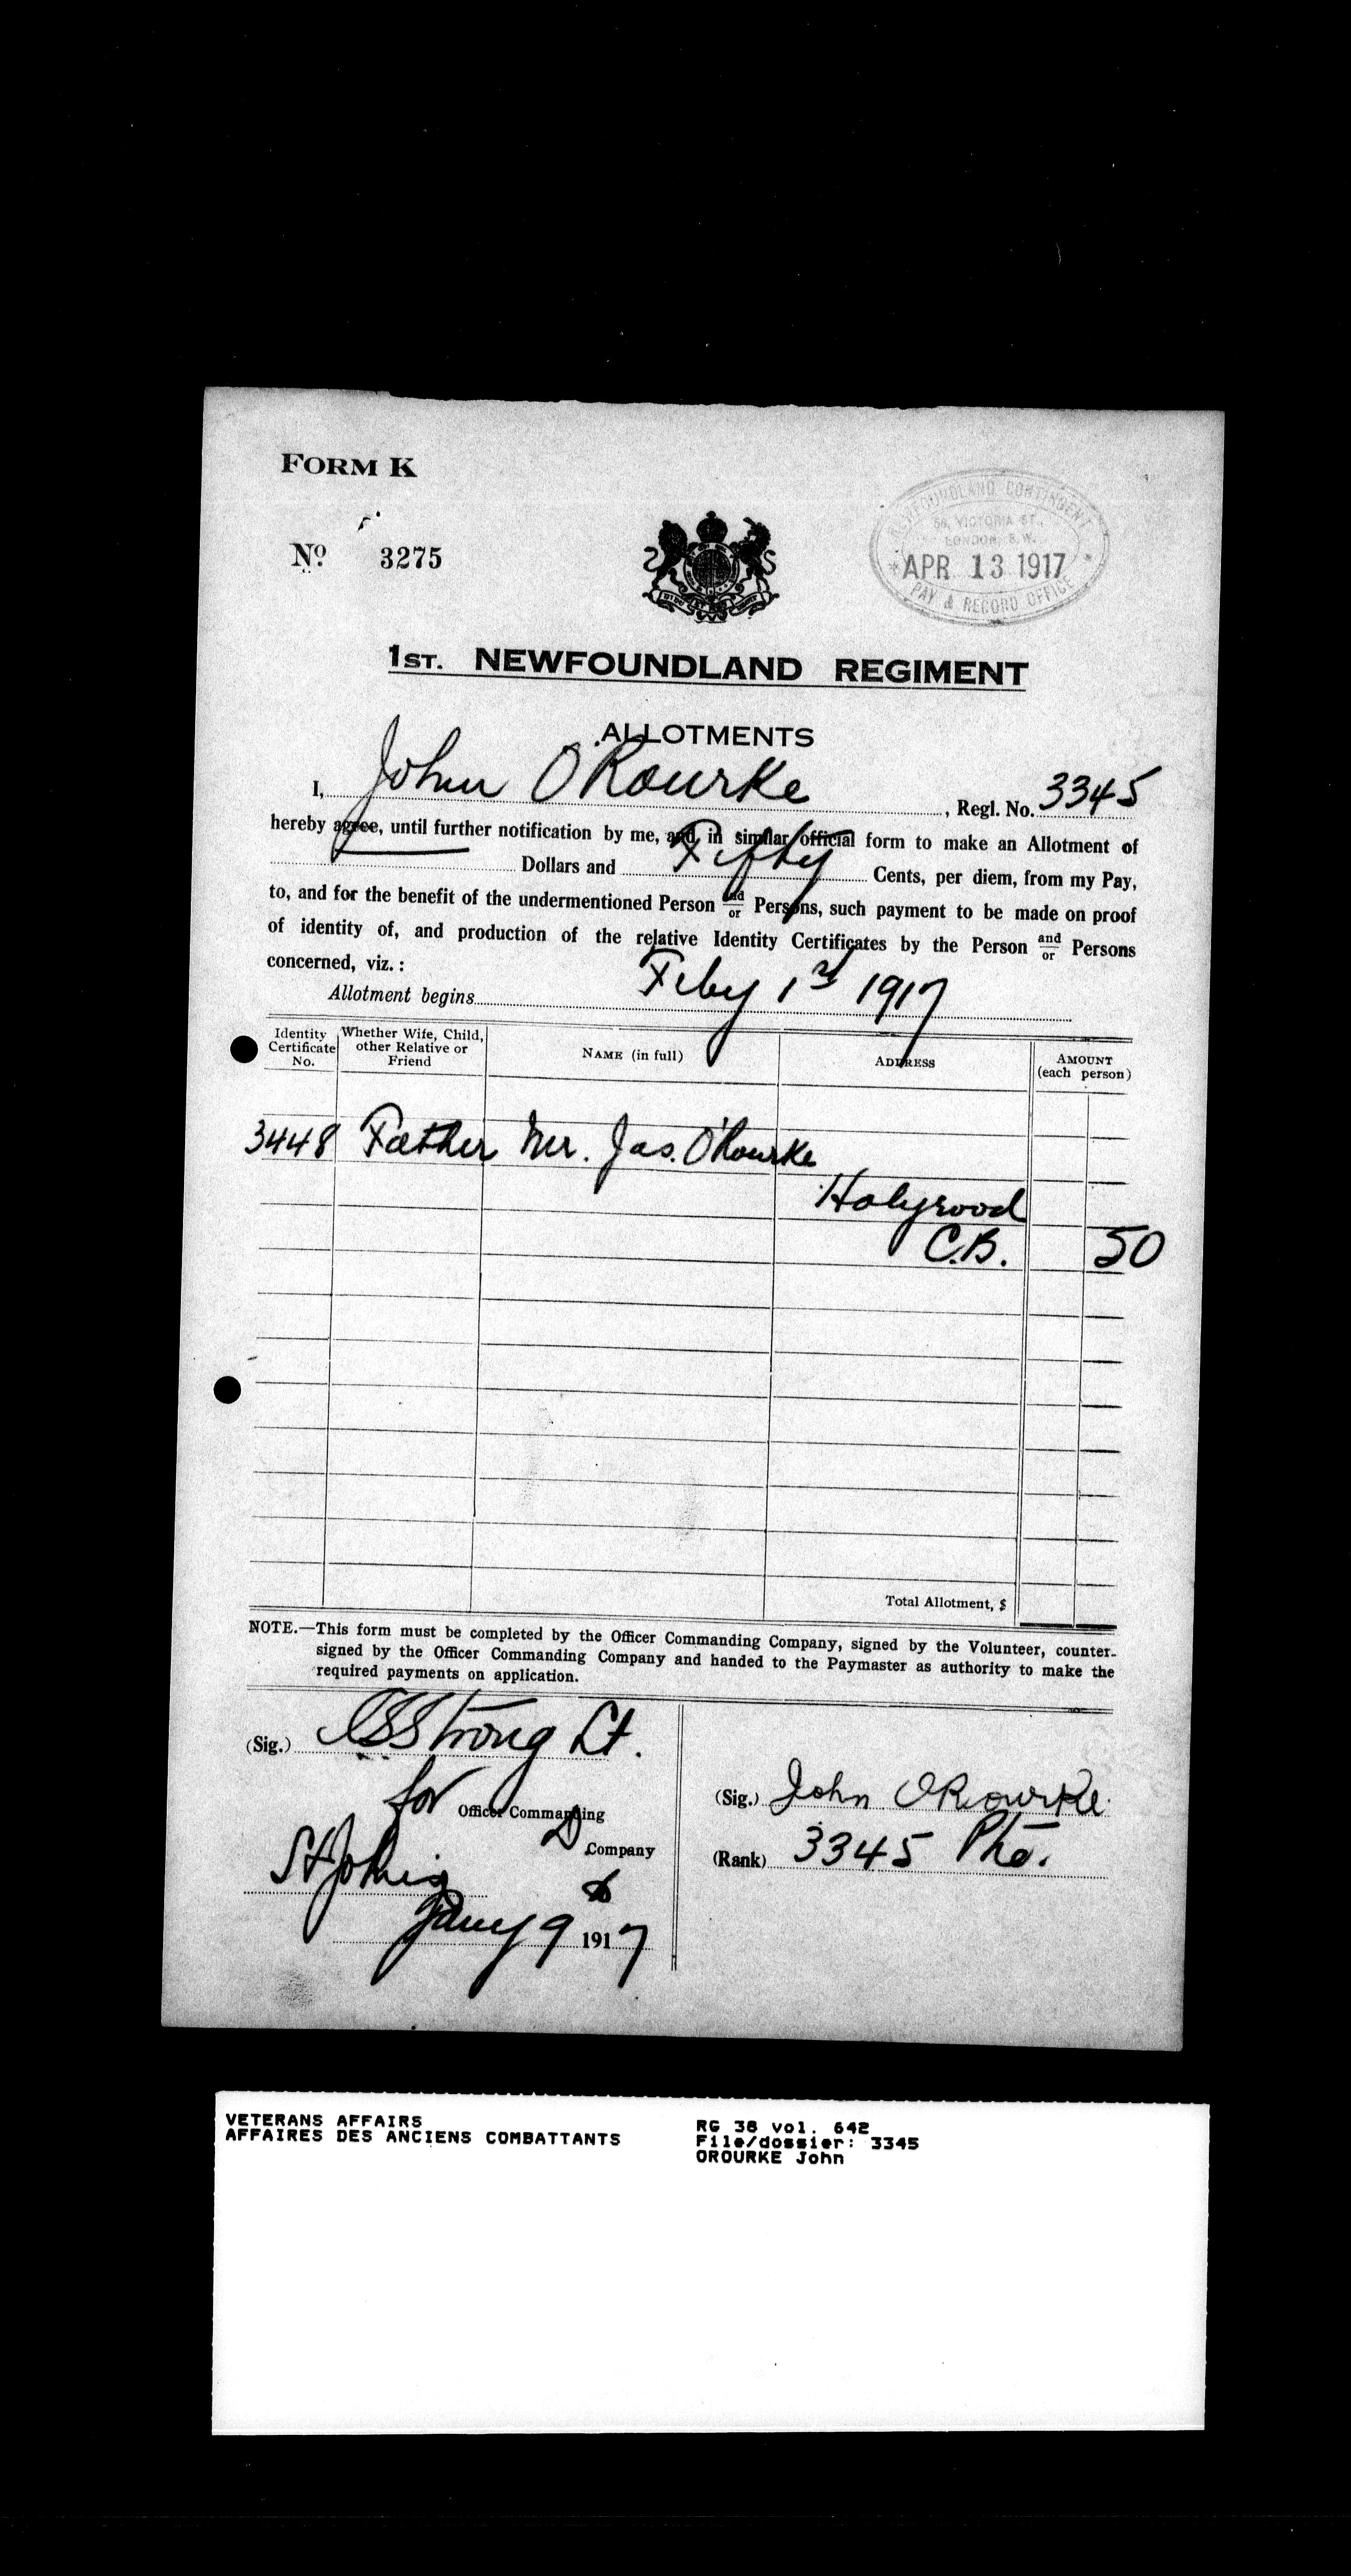 FORM K
NEWFOUNDLAND CONTINGENT
58, VICTORIA ST.,
LONDON, S.W.
APR 13 1917
PAY & RECORD OFFICE
No 3275
1ST. NEWFOUNDLAND REGIMENT
ALLOTMENTS
I, John O'Rourke, Regl. No. 3345
hereby agree, until further notification by me, and in similar official form to make an Allotment of
Dollars and Fifty Cents, per diem, from my Pay,
to, and for the benefit of the undermentioned Person and/or Persons, such payment to be made on proof
of identity of, and production of the relative Identity Certificates by the Person and/or Persons
concerned, viz. :
Allotment begins Feby 1st 1917
Identity Certificate No. Whether Wife, Child, other Relative or Friend NAME (in full) ADDRESS AMOUNT (each person)
3448 Father Mr. Jas. O'Rourke
Holyrood
C.B. 50
Total Allotment, $
NOTE.—This form must be completed by the Officer Commanding Company, signed by the Volunteer, counter-
signed by the Officer Commanding Company and handed to the Paymaster as authority to make the
required payments on application.
(Sig.) Strong Lt.
for Officer Commanding
D Company
St Johns
Jany 9 1917
(Sig.) John ORourke
(Rank) 3345 Pte.
VETERANS AFFAIRS
AFFAIRES DES ANCIENS COMBATTANTS
RG 38 vol. 642
File/dossier: 3345
OROURKE John